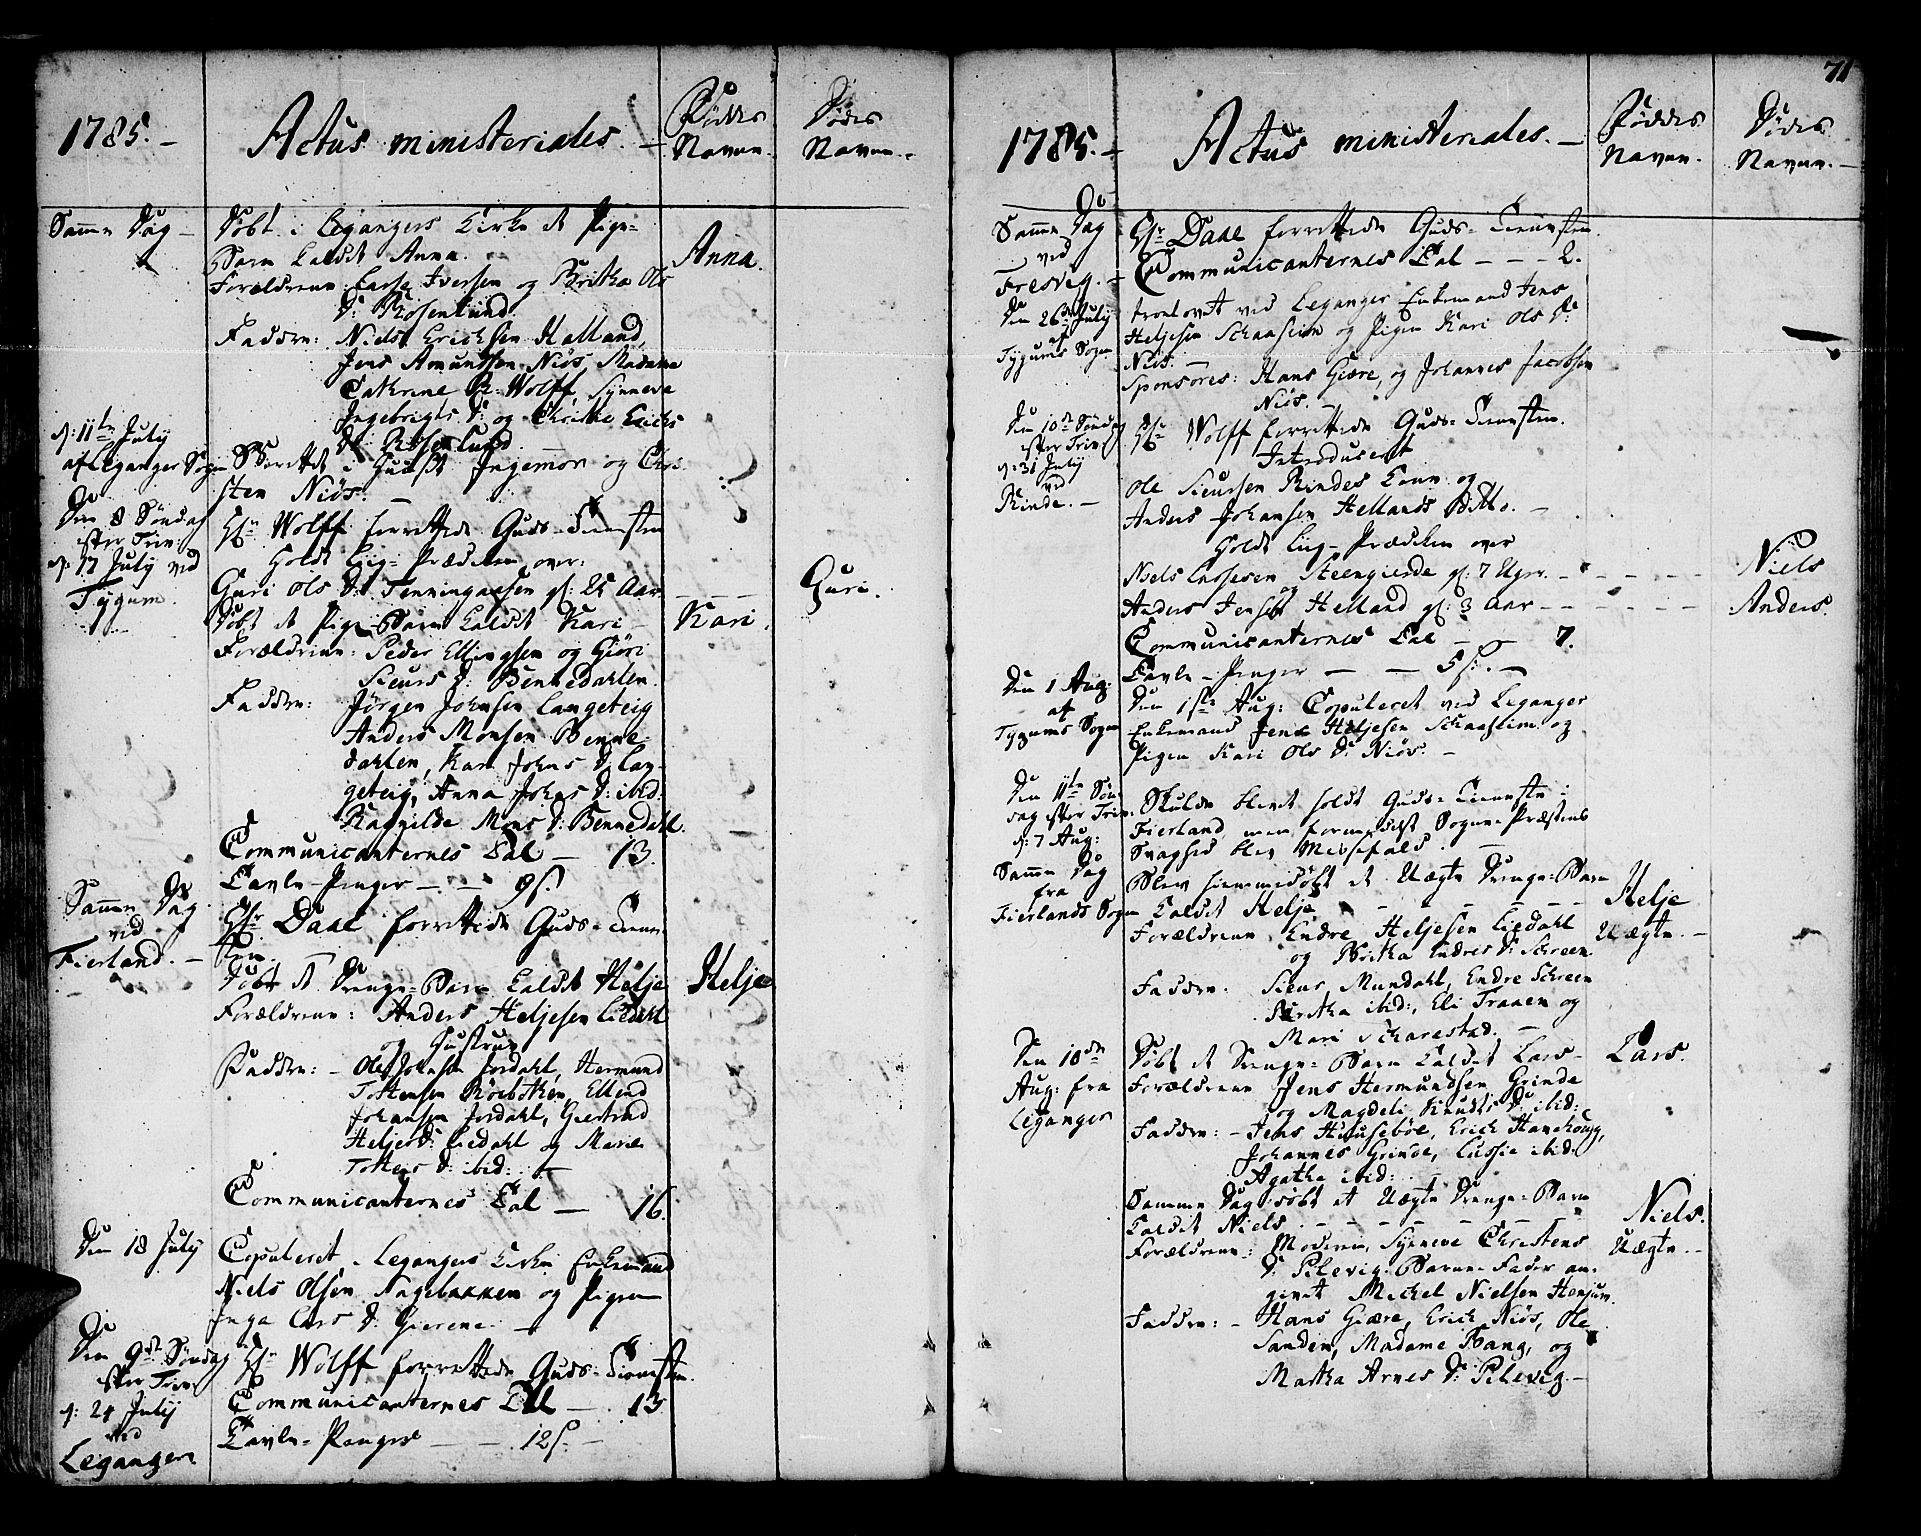 1785. –
Actus ministeriales. –
Føddes
Navne.
Dødes
Navne. –
Samme Dag –
Døbt i Legangers Kirke et Pige-
Barn kaldet Anna.
Anna.
Forældrene Lasse Iversen og Britha Ols
D: Rosenlund.
Faddere: Niels Erichsen Halland,
Jens Amundsen Niøs, Madame
Cathrine B. Wolff, Synneve
Ingebrigts D: og Christie Erichs
D: Rosenlund.
d: 11te July
af Leganger Sogn
i Huuset Ingemor og Chri-
sten Niøs. –
Den 8 Søndag
efter Trin:
d: 17 July ved
Tygum.
Hr Wolff forrettede Guds-Tienesten
Holdt Liig-Prædiken over:
Guri Ols D: Tenningaasen gl: 25 Aar
Guri.
Døbt et Pige-Barn kaldet Kari –
Kari.
Forældrene: Peder Ellingsen og Giøri
Siurs D: Bennedahlen.
Faddere: Jørgen Johnsen Langeteig
Anders Monsen Benne-
dahlen, Kari Johns D: Lan-
geteig, Anna Johns D: ibid:
Ragnilde Mons D: Bennedahl.
Communicanternes Tal – 13.
Tavle-Penger – – 9 s.
Samme Dag
ved
Fierland. –
Hr Daae forrettede Guds-Tiene-
sten.
Døbt et Drenge-Barn kaldet Helje
Helje
Forældrene: Anders Heljesen Liedahl
og Hustrue
Faddere: – Ole Johnsen Jordahl, Hermund
Tottensen Bøebotten, Ellend
Johansen Jordahl, Giertrud
Heljes D: Liedahl og Marie
Tottens D: ibid: –
Communicanternes Tal – 16.
Den 18 July
Copuleret i Legangers Kirke Enkemand
Niels Olsen Nagebakken og Pigen
Inga Lars D: Gierene. –
Den 9de Søndag
efter Trin:
d: 24 July
ved
Leganger
Hr Wolff forrettede Guds-Tienesten.
Communicanternes Tal – 13
Tavle-Penger – – 12 s. –
71
1785. –
Actus ministeriales. –
Føddes
Navne.
Dødes
Navne. –
Samme Dag
ved
Fresvig. –
Hr Daae forrettede Guds-Tienesten.
Communicanternes Tal – – – 2.
Den 26de July
af
Tygums Sogn
trolovet ved Leganger Enkemand Jens
Heljesen Schaaseim og Pigen Kari Ols D:
Niøs. –
Sponsores: Hans Giære, og Johannes Jacobsen
Niøs. –
Den 10de Søndag
efter Trin:
d: 31 July
ved
Rinde. –
Hr Wolff forrettede Guds-Tienesten.
Introduceret
Ole Siursen Rindes Kone og
Anders Johansen Hellands Ditto. –
Holdt Liig-Prædiken over
Niels Lassesen Steengierde gl: 7 Uger. – – – –
Niels
og
Anders Jensen Helland gl: 3 Aar – – – –
Anders.
Communicanternes Tal – – 7.
Tavle-Penger – – 5 s. –
Den 1 Aug:
af
Tygums Sogn
Den 1ste Aug: Copuleret ved Leganger
Enkemand Jens Heljesen Schaaseim og
Pigen Kari Ols D: Niøs. –
Den 11te Søn-
dag efter Trin:
d: 7 Aug:
Skulde blevet holdt Guds-Tieneste i
Fierland men formedelst Sogne-Præstens
Svaghed blev Messefald.
Samme Dag
fra
Fierlands Sogn
Blev hiemmedøbt et Uægte Drenge-Barn
kaldet Helje – – – – –
Helje
Uægte. –
Forældrene Endre Heljesen Liedahl
og Britha Endres D: Schreen
Faddere. Siur Mundahl, Endre Schreen
Britha ibid:, Eli Traaen og
Mari Scharestad. –
Den 10de
Aug: fra
Leganger
Døbt et Drenge-Barn kaldet Lars –
Lars.
Forældrene Jens Hermundsen Grinde
og Magdeli Knuds D: ibid:
Faddere: – Jens Huusebøe, Erich Hanehoug,
Johannes Grinde, Lussie ibid:
Agatha ibid:
Samme Dag døbt et Uægte Drenge-Barn
kaldet Niels – – – – –
Niels.
Uægte. –
Forældrene: Moderen, Synneve Christens
D: Pilevig. Barne-Fader an-
givet Michel Nielsen Henjum.
Faddere: – Hans Giære, Erich Niøs, Ole
Sanden, Madame Bang, og
Martha Arnes D: Pilevig. –